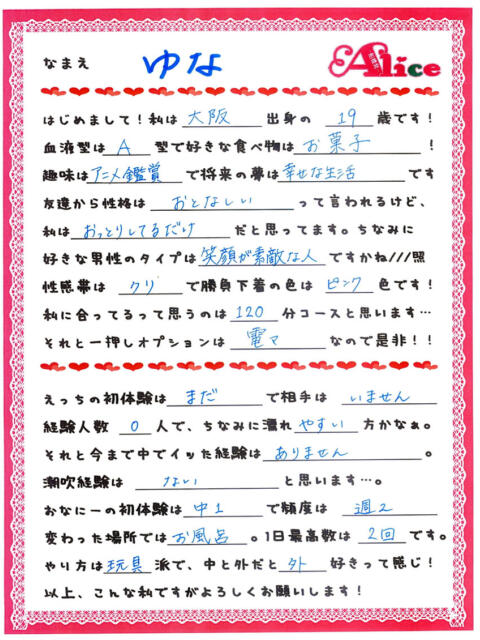 なまえ ゆな Alice
はじめまして！私は 大阪 出身の 19 歳です！
血液型は A 型で好きな食べ物は お菓子 ！
趣味は アニメ鑑賞 で将来の夢は 幸せな生活 です
友達から性格は おとなしい って言われるけど、
私は おっとりしてるだけ だと思ってます。ちなみに
好きな男性のタイプは 笑顔が素敵な人 ですかね///照
性感帯は クリ で勝負下着の色は ピンク 色です！
私に合ってるって思うのは 120 分コースと思います…
それと一押しオプションは 電マ なので是非！！
えっちの初体験は まだ で相手は いません
経験人数 0 人で、ちなみに濡れ やすい 方かなぁ。
それと今まで中でイッた経験は ありません 。
潮吹経験は ない と思います…。
変わった場所では お風呂 。1日最高数は 2回 です。
やり方は 玩具 派で、中と外だと 外 好きって感じ！
以上、こんな私ですがよろしくお願いします！